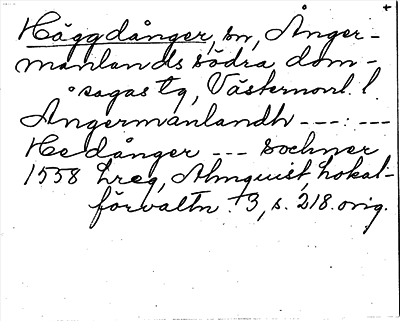 Häggdånger, sn, Ånger-
manlands södra dom-
sagas tg, Västernorrl. l.
Angermanlandh ---:---
Hedånger --- sochner
1558 Lreg, Almquist, Lokal-
förvaltn. 3, s. 218. orig.